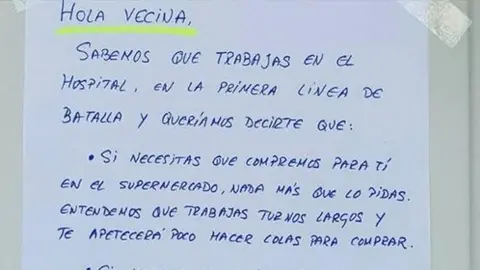 HOLA VECINA,
SABEMOS QUE TRABAJAS EN EL
HOSPITAL, EN LA PRIMERA LINEA DE
BATALLA Y QUERÍAMOS DECIRTE QUE:
• SI NECESITAS QUE COMPREMOS PARA TÍ
EN EL SUPERMERCADO, NADA MÁS QUE LO PIDAS.
ENTENDEMOS QUE TRABAJAS TURNOS LARGOS Y
TE APETECERÁ POCO HACER COLAS PARA COMPRAR.